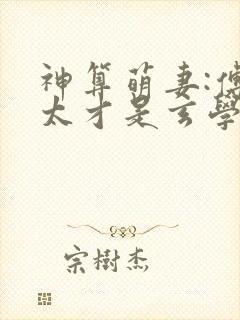 神算萌妻:傅
太才是玄學
宗樹杰